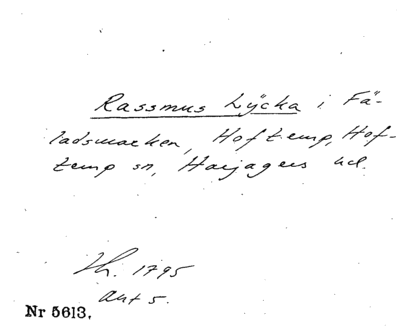 Rassmus Lÿcka i Fä-
ladsmarken, Hofterup, Hof-
terup sn, Harjagers hd.
Lh. 1795
akt 5.
Nr 5613.